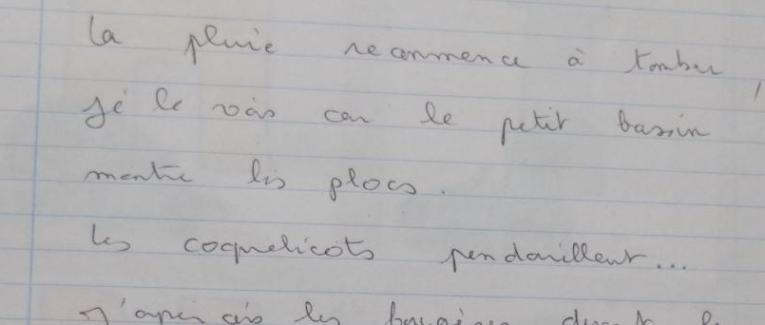 la pluie recommence à tomber,
je le vois car le petit bassin
montre les plocs.
les coquelicots pendouillent...
J'aperçois les